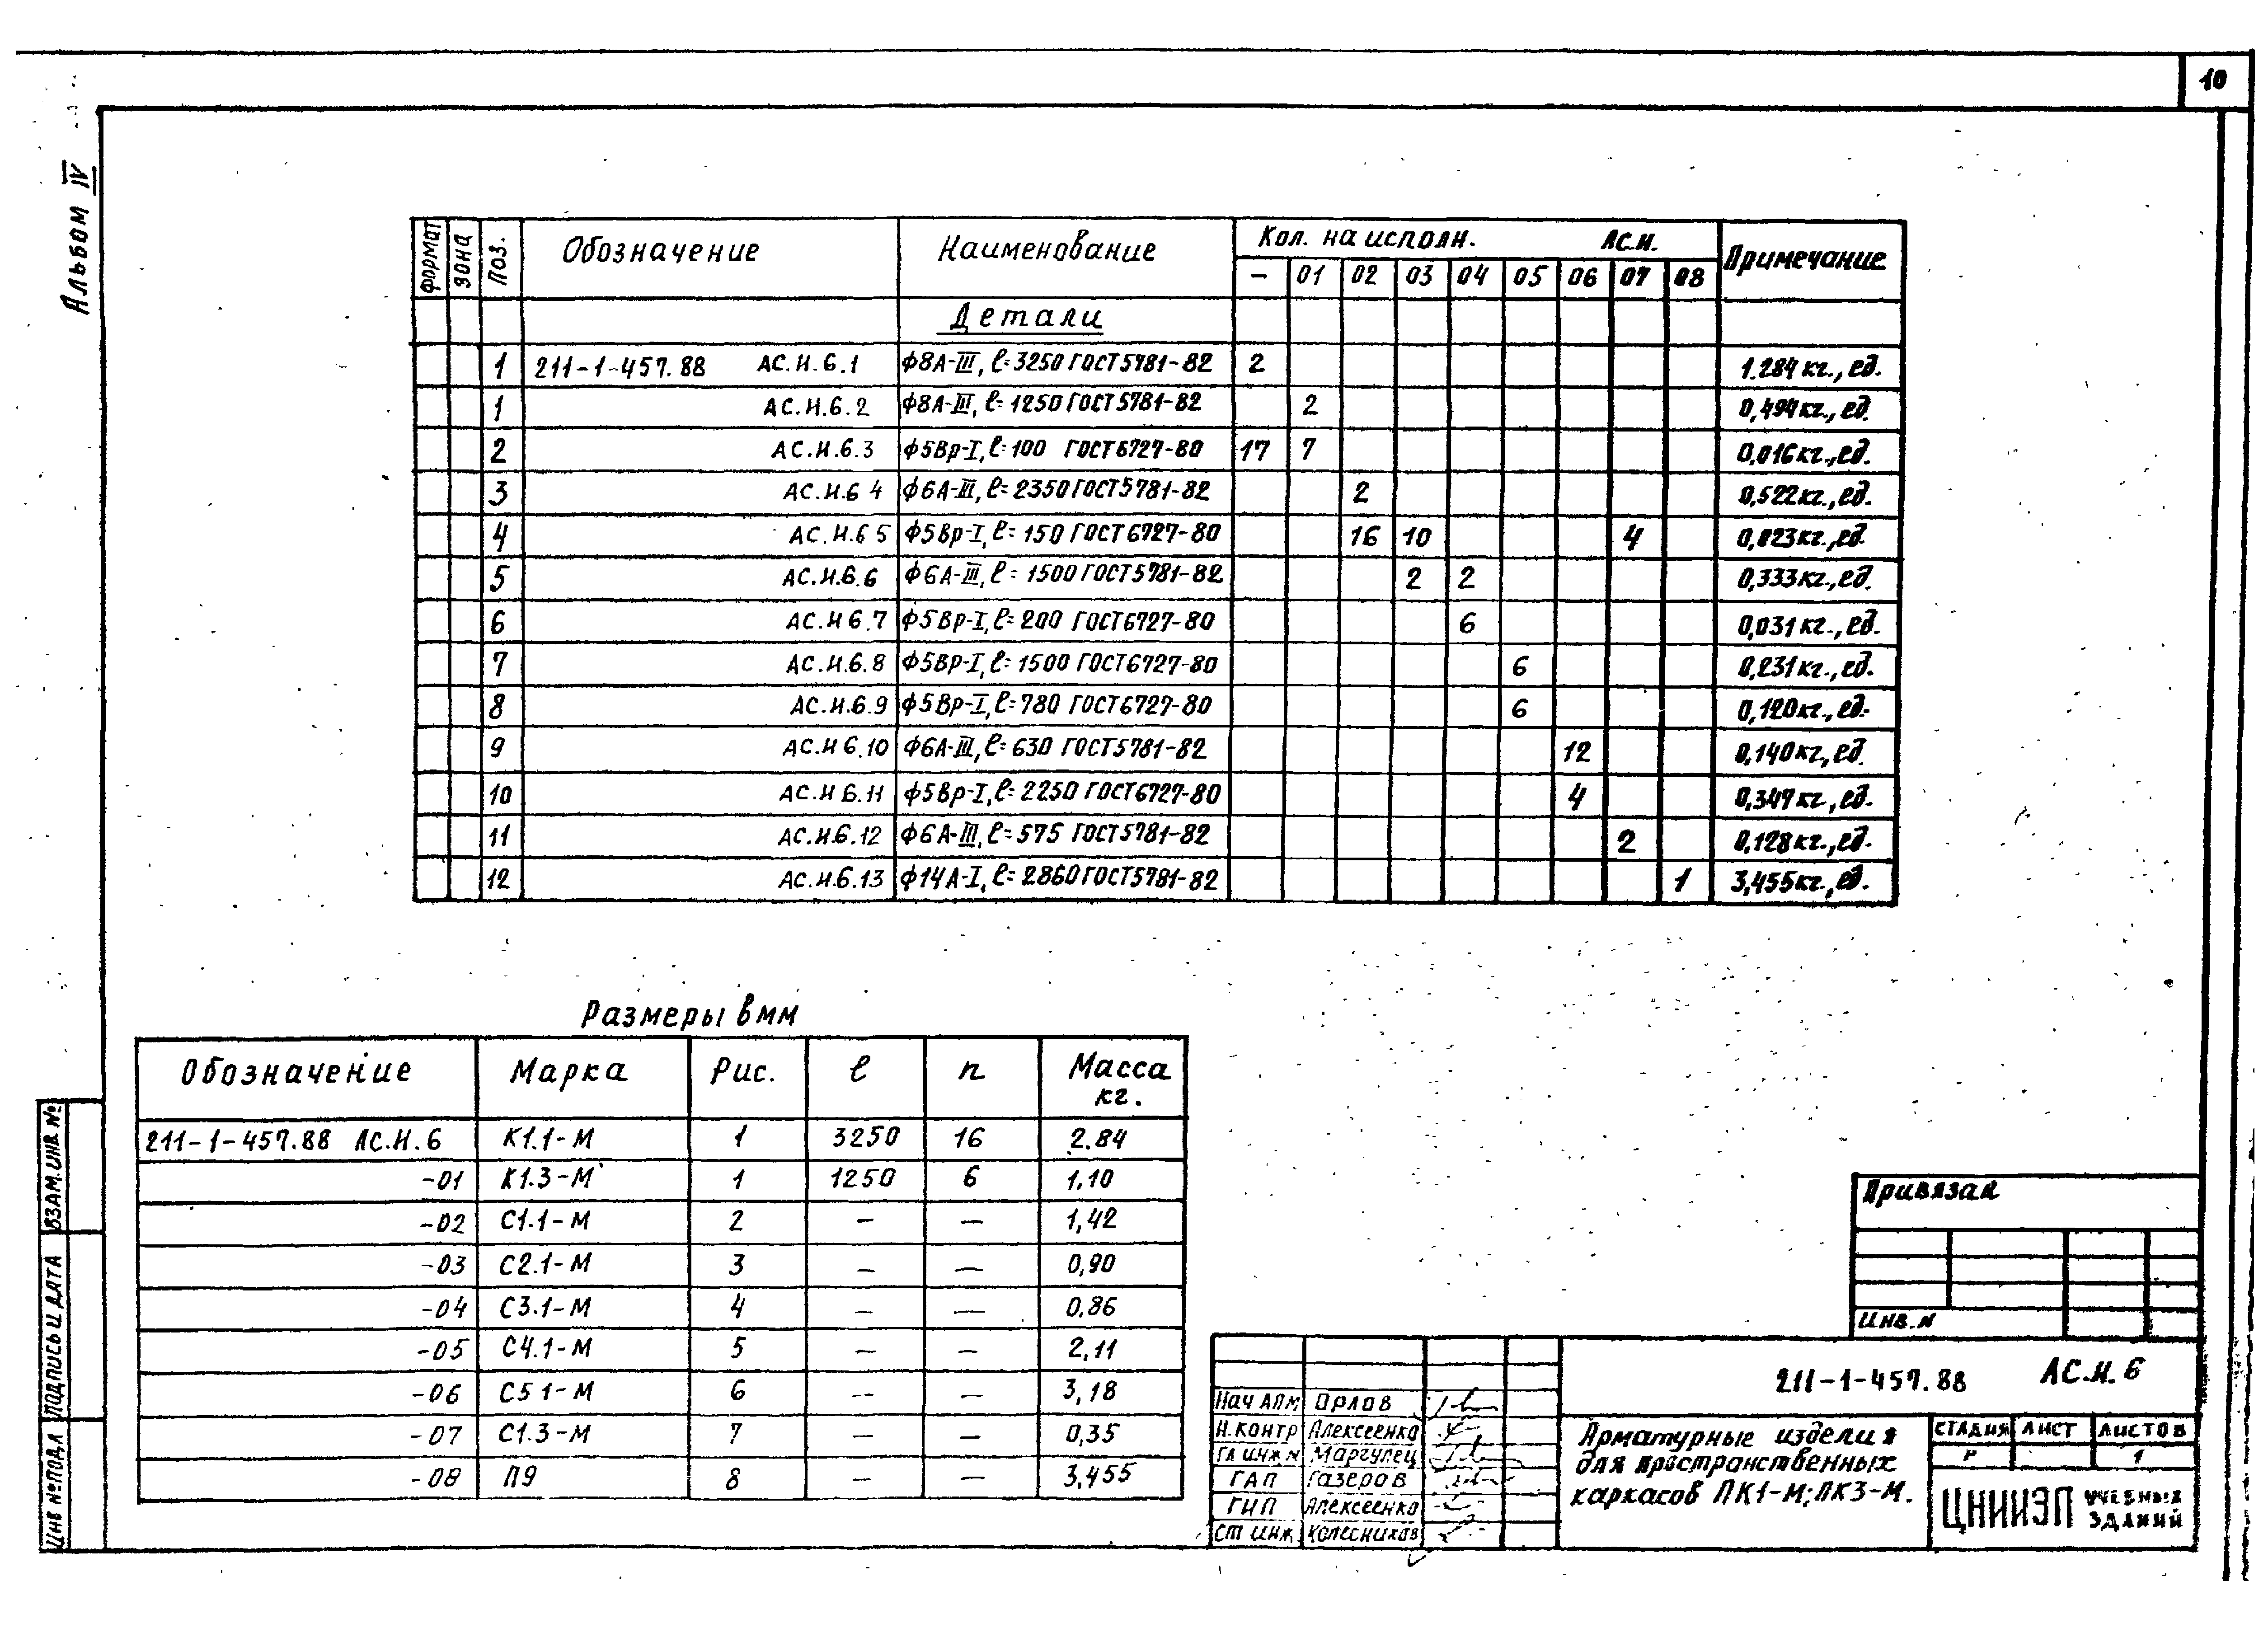 10
Альбом IV
Формат Зона Поз. Обозначение Наименование Кол. на исполн. АС.И. Примечание
– 01 02 03 04 05 06 07 08
Детали
1 211-1-457.88 АС.И.6.1 Ф8А-III, ℓ=3250 ГОСТ 5781-82 2 1.284кг., ед.
1 АС.И.6.2 Ф8А-III, ℓ=1250 ГОСТ 5781-82 2 0,494кг., ед.
2 АС.И.6.3 Ф5Вр-I, ℓ=100 ГОСТ 6727-80 17 7 0,016кг., ед.
3 АС.И.6 4 Ф6А-III, ℓ=2350 ГОСТ 5781-82 2 0,522кг., ед.
4 АС.И.6 5 Ф5Вр-I, ℓ=150 ГОСТ 6727-80 16 10 4 0,023кг., ед.
5 АС.И.6.6 Ф6А-III, ℓ=1500 ГОСТ 5781-82 2 2 0,333кг., ед.
6 АС.И 6.7 Ф5Вр-I, ℓ=200 ГОСТ 6727-80 6 0,031кг., ед.
7 АС.И.6.8 Ф5Вр-I, ℓ=1500 ГОСТ 6727-80 6 0,231кг., ед.
8 АС.И.6.9 Ф5Вр-I, ℓ=780 ГОСТ 6727-80 6 0,120кг., ед.
9 АС.И 6.10 Ф6А-III, ℓ=630 ГОСТ 5781-82 12 0,140кг, ед.
10 АС.И 6.11 Ф5Вр-I, ℓ=2250 ГОСТ 6727-80 4 0,347кг., ед.
11 АС.И.6.12 Ф6А-III, ℓ=575 ГОСТ 5781-82 2 0,128кг., ед.
12 АС.И.6.13 Ф14А-I, ℓ=2860 ГОСТ 5781-82 1 3,455кг., ед.
Размеры в мм
Обозначение Марка Рис. ℓ n Масса кг.
211-1-457.88 АС.И.6 К1.1-М 1 3250 16 2.84
-01 К1.3-М 1 1250 6 1,10
-02 С1.1-М 2 — — 1,42
-03 С2.1-М 3 — — 0,90
-04 С3.1-М 4 — — 0,86
-05 С4.1-М 5 — — 2,11
-06 С5 1-М 6 — — 3,18
-07 С1.3-М 7 — — 0,35
-08 П9 8 — — 3,455
Взам. инв №
Подпись и дата
Инв № подл
Привязан
Инв. N
211-1-457.88 АС.И. 6
Нач АПМ Орлов
Н.контр Алексеенко
Гл инж М Маргулец
ГАП Газеров
ГИП Алексеенко
Ст инж Колесников
Арматурные изделия
для пространственных
каркасов ПК1-М; ПК3-М.
Стадия Лист Листов
Р 1
ЦНИИЭП учебных
зданий